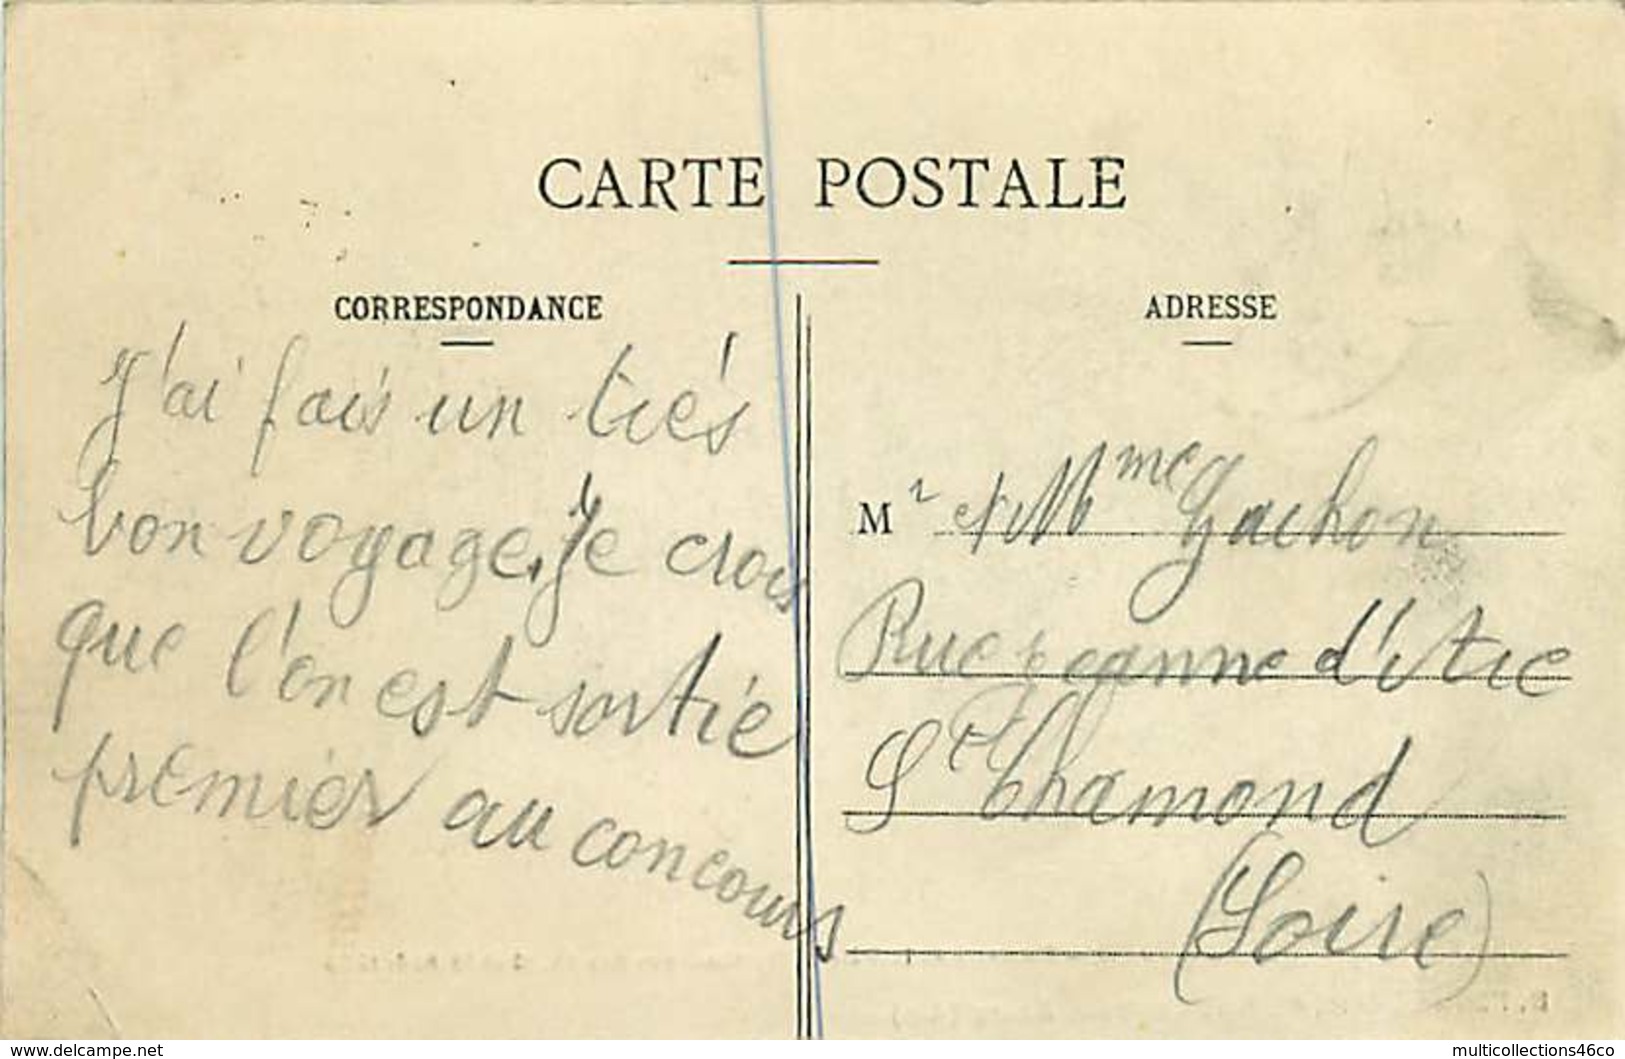 CARTE POSTALE
CORRESPONDANCE
J'ai fais un trés
bon voyage. Je crois
que l'on est sortie
premier au concours
ADRESSE
Mr et Mme Gachon
Rue Jeanne d'Arc
St Chamond
(Loire)
delcampe.net
multicollections46co